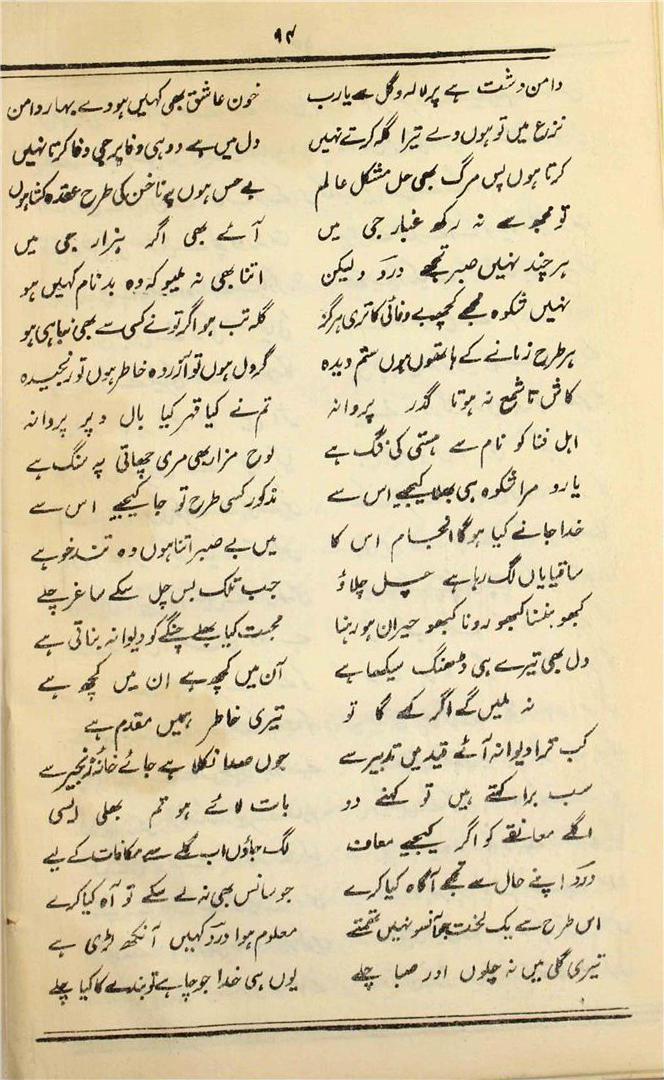 ۹۴
دامن دشت ہے پر لالہ و گل سے یارب خون عاشق بھی کہیں ہووے بہار دامن
نزع میں تو ہوں ولے تیرا گلہ کرتے نہیں دل میں ہے دو ہی وفا پر جی وفا کرتا نہیں
کرتا ہوں پس مرگ بھی حل مشکل عالم بے حس ہوں پہ ناخن کی طرح عقدہ کشا ہوں
تو مجھ سے نہ رکھ غبار جی میں آئے بھی اگر ہزار جی میں
ہر چند نہیں صبر تجھے درد و لیکن اتنا بھی نہ ملیو کہ وہ بدنام کہیں ہو
نہیں شکوہ مجھے کچھ بے وفائی کا تری ہرگز گلہ تب ہو اگر تو نے کسی سے بھی نباہی ہو
ہر طرح زمانے کے ہاتھوں ہوں ستم دیدہ گر دل ہوں تو آزردہ خاطر ہوں تو رنجیدہ
کاش تا شمع نہ ہوتا گذر پروانہ تم نے کیا قہر کیا بال و پر پروانہ
اہل فنا کو نام سے ہستی کی ننگ ہے لوح مزار بھی مری چھاتی پہ سنگ ہے
یارو مرا شکوہ ہی بھلا کیجیے اس سے مذکور کسی طرح تو جا کیجیے اس سے
خدا جانے کیا ہوگا انجام اس کا میں بے صبر اتنا ہوں وہ تند خو ہے
ساقیا یاں لگ رہا ہے چل چلاؤ جب تلک بس چل سکے ساغر چلے
کبھو ہنسنا کبھو رونا کبھو حیران ہو رہنا محبت کیا بھلے چنگے کو دیوانہ بناتی ہے
دل بھی تیرے ہی ڈھنگ سیکھا ہے آن میں کچھ ہے ان میں کچھ ہے
نہ ملیں گے اگر کہے گا تو تیری خاطر ہمیں مقدم ہے
کب ترا دیوانہ آئے قید میں تدبیر سے جوں صدا نکلا ہے جائے خانۂ زنجیر سے
سب برا کہتے ہیں تو کہنے دو بات لائے ہو تم بھلی ایسی
اگلے معانقے کو اگر کیجیے معاف لگ جاؤں اب گلے سے مکافات کے لیے
درد اپنے حال سے تجھے آگاہ کیا کرے جو سانس بھی نہ لے سکے تو آہ کیا کرے
اس طرح سے یک لخت جو آنسو نہیں تھمتے معلوم ہوا درد کہیں آنکھ لڑی ہے
تیری گلی میں نہ چلوں اور صبا چلے یوں ہی خدا جو چاہے تو بندے کا کیا چلے